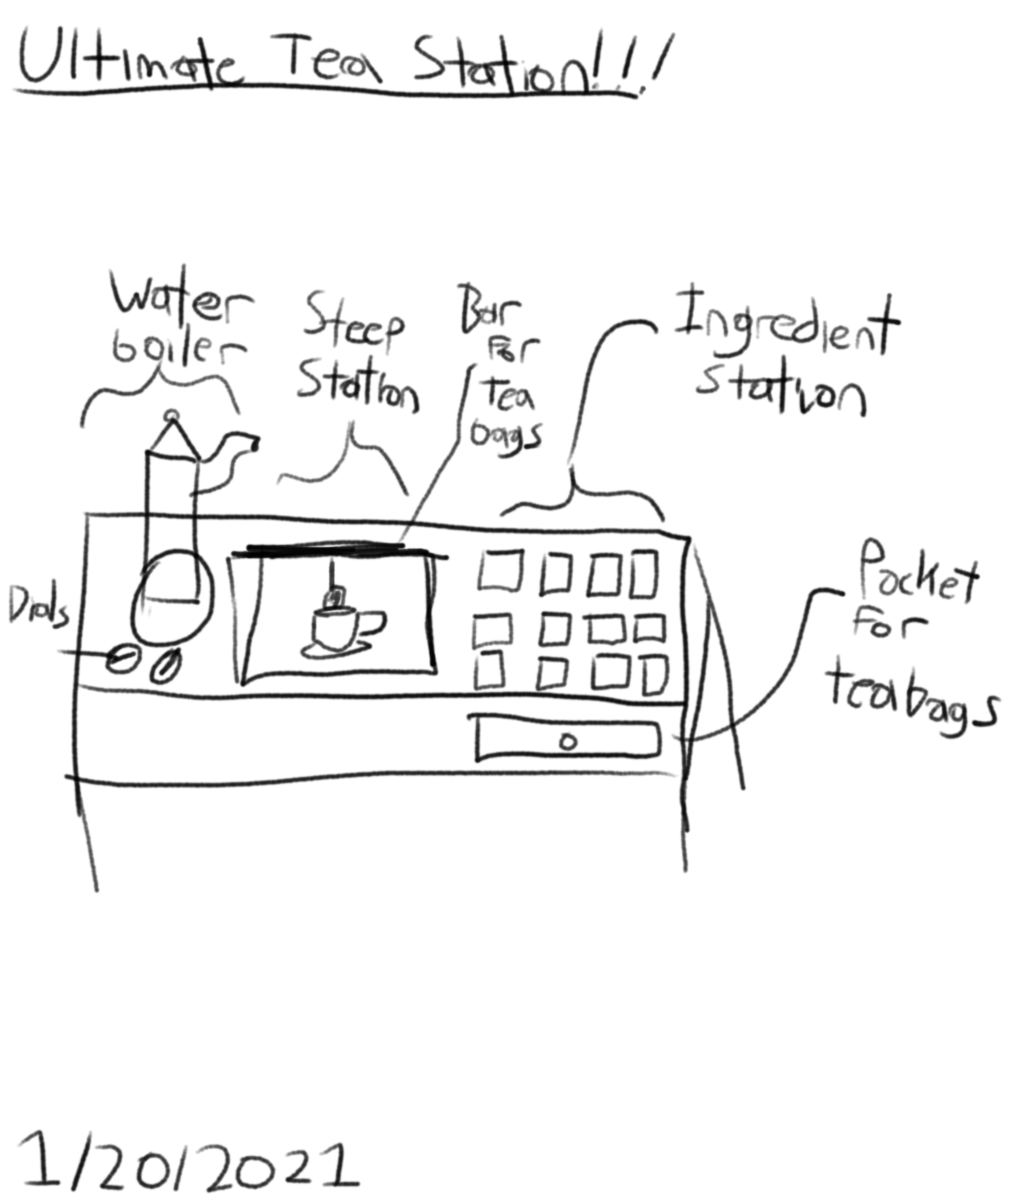 Ultimate Tea Station!!!
Water
boiler
Steep
Station
Bar
For
Tea
bags
Ingredient
Station
Dials
Pocket
For
teabags
1/20/2021